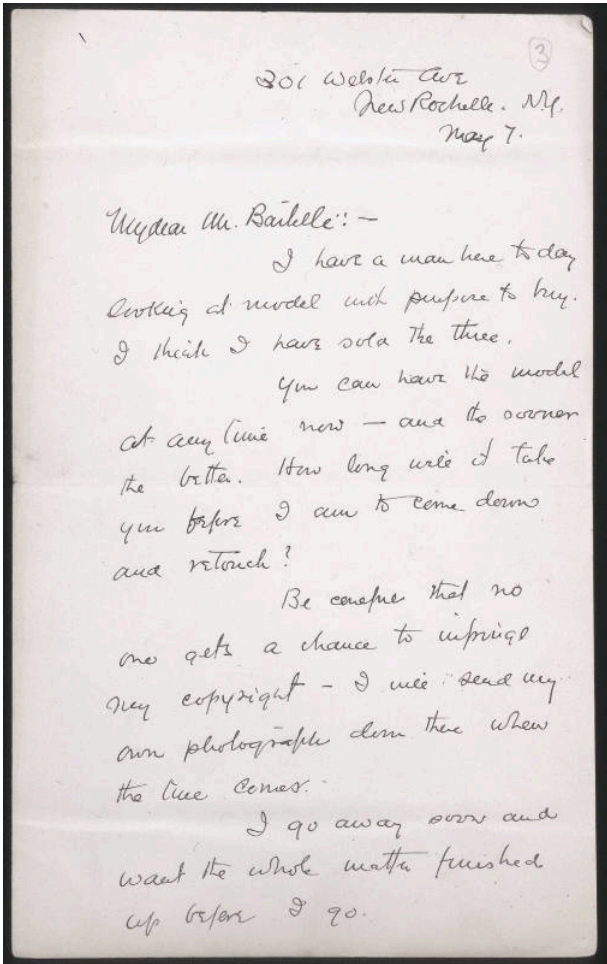 3
301 Webster Ave
New Rochelle. N.Y.
May 7.
My dear Mr. :—
I have a man here today
looking at model with purpose to buy.
I think I have sold the three.
You can have the model
at any time now — and the sooner
the better. How long will it take
you before I am to come down
and retouch?
Be careful that no
one gets a chance to infringe
my copyright – I will send my
own photograph down there when
the time comes.
I go away soon and
want the whole matter finished
up before I go.